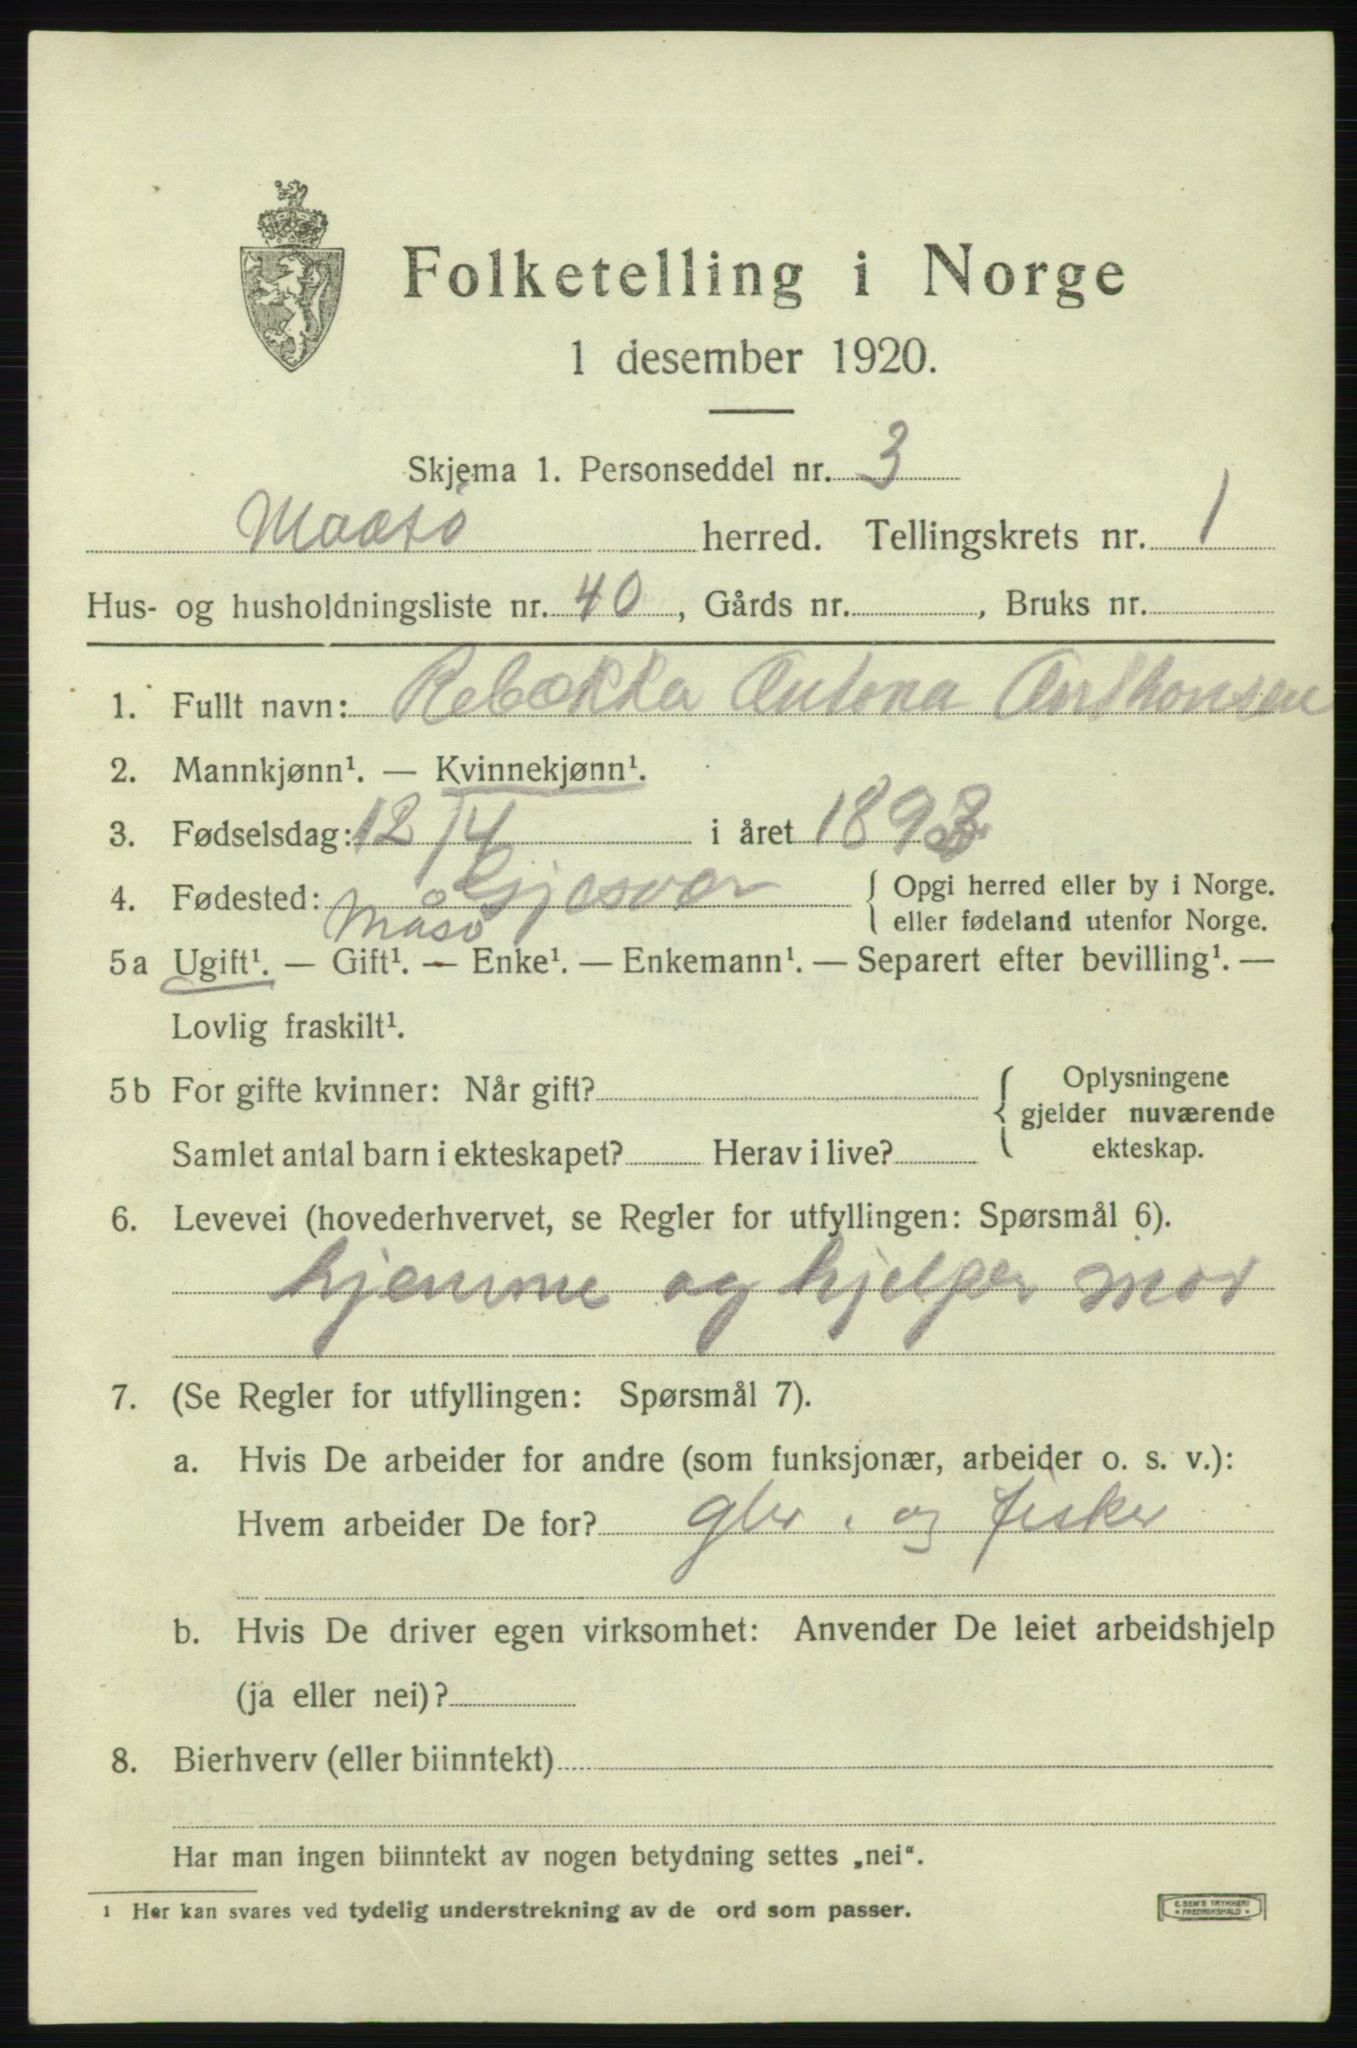 Folketelling i Norge
1 desember 1920.
Skjema 1. Personseddel nr. 3
Maasø herred. Tellingskrets nr. 1
Hus- og husholdningsliste nr. 40, Gårds nr. , Bruks nr.
1. Fullt navn: Rebekka Antona Anthonsen
2. Mannkjønn¹. — Kvinnekjønn¹.
3. Fødselsdag: 12/4 i året
4. Fødested: Gjesvær { Opgi herred eller by i Norge.
Måsø { eller fødeland utenfor Norge.
5a Ugift¹. — Gift¹. — Enke¹. — Enkemann¹. — Separert efter bevilling¹. —
Lovlig fraskilt¹.
5b For gifte kvinner: Når gift? { Oplysningene
gjelder nuværende
Samlet antal barn i ekteskapet? Herav i live? ekteskap.
6. Levevei (hovederhvervet, se Regler for utfyllingen: Spørsmål 6).
hjemme og hjelper mor
7. (Se Regler for utfyllingen: Spørsmål 7).
a. Hvis De arbeider for andre (som funksjonær, arbeider o. s. v.):
Hvem arbeider De for? og fisker
b. Hvis De driver egen virksomhet: Anvender De leiet arbeidshjelp
(ja eller nei)?
8. Bierhverv (eller biinntekt)
Har man ingen biinntekt av nogen betydning settes „nei“.
1 Her kan svares ved tydelig understrekning av de ord som passer.
E. SEM'S TRYKKERI
FREDRIKSHALD